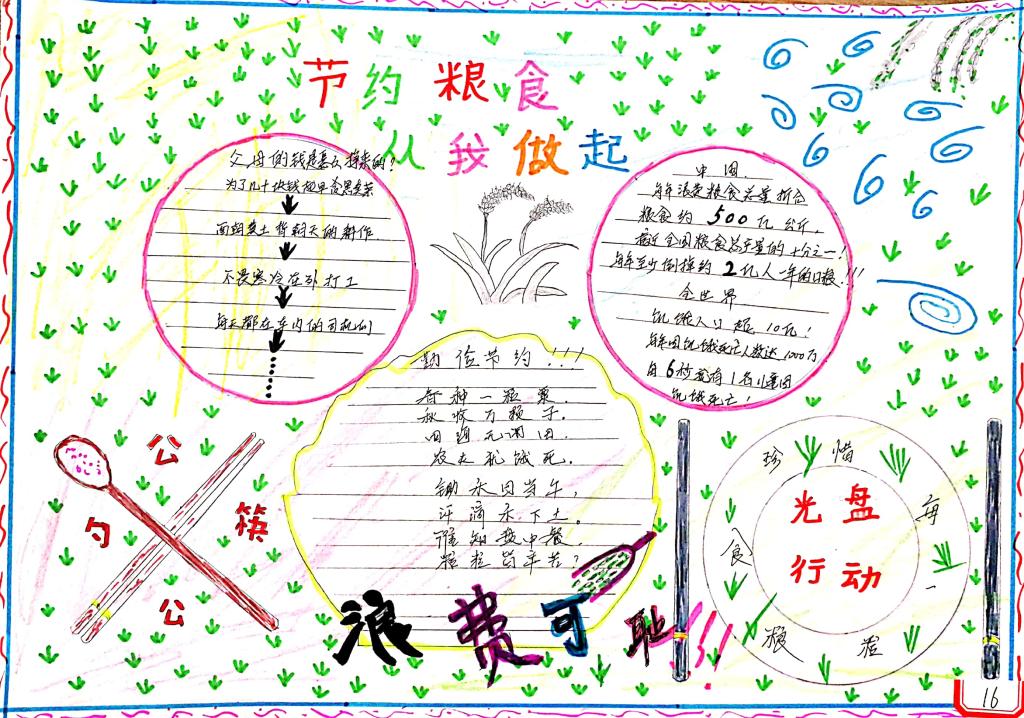 节约粮食
从我做起
父母的钱是怎么挣来的?
为了几十块钱起早贪黑卖菜
面朝黄土背朝天的耕作
不畏寒冷在外打工
每天都在车内的司机们
勤俭节约!!!
春种一粒粟.
秋收万颗子.
四海无闲田.
农夫犹饿死.
锄禾日当午,
汗滴禾下土。
谁知盘中餐.
粒粒皆辛苦?
中国.
每年浪费粮食总量折合
粮食约500亿公斤,
接近全国粮食总产量的十分之一!
每年至少倒掉约2亿人一年的口粮!!!
全世界
饥饿人口超10亿!
每年因饥饿死亡人数达1000万,
每6秒就有1名儿童因
饥饿死亡!
公筷
公勺
珍惜每一粒粮食
光盘
行动
浪费可耻!!!
16